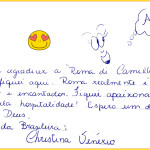 agradecer a Roma de Camille
fiquei aqui. Roma realmente é
e encantador. Fiquei apaixonada
hospitalidade! Espero um d
Deus.
da Brasileira:
Christina Venério